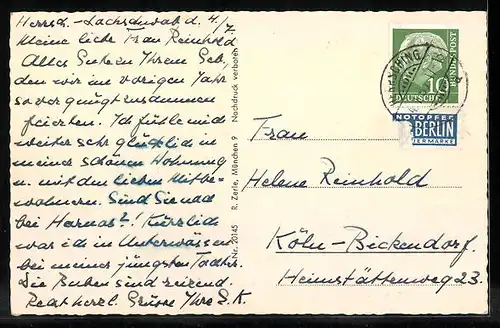 Herrsch.-Lochschwab d. 4/7
Meine liebe Frau Reinhold
Alles Gute zu Ihrem Geb.,
den wir im vorigen Jahr
so vergnügt zusammen
feierten. Ich fühle mich
weiter sehr glücklich in
meiner schönen Wohnung
u. mit den lieben Mitbe-
wohnern. Sind Sie noch
bei Harnas?! Kürzlich
war ich in Unterwössen
bei meiner jüngsten Tochter.
Die Buben sind reizend.
Recht herzl. Grüsse Ihre E. K.
Nr. 20145 R. Zerle, München 9 Nachdruck verboten
10
DEUTSCHE
BUNDESPOST
NOTOPFER
2 BERLIN
STEUERMARKE
Frau
Helene Reinhold
Köln-Bickendorf.
Heimstättenweg 23.